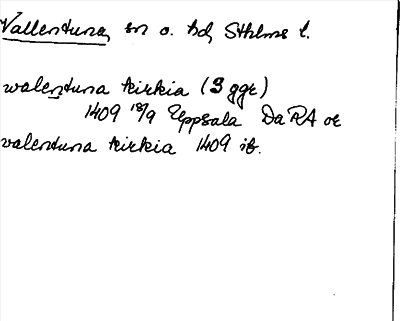 Vallentuna, sn o. hd, Sthlms l.
walentuna kirkia (3 ggr)
1409 18/9 Uppsala DaRA or
valentuna kirkia 1409 ib.